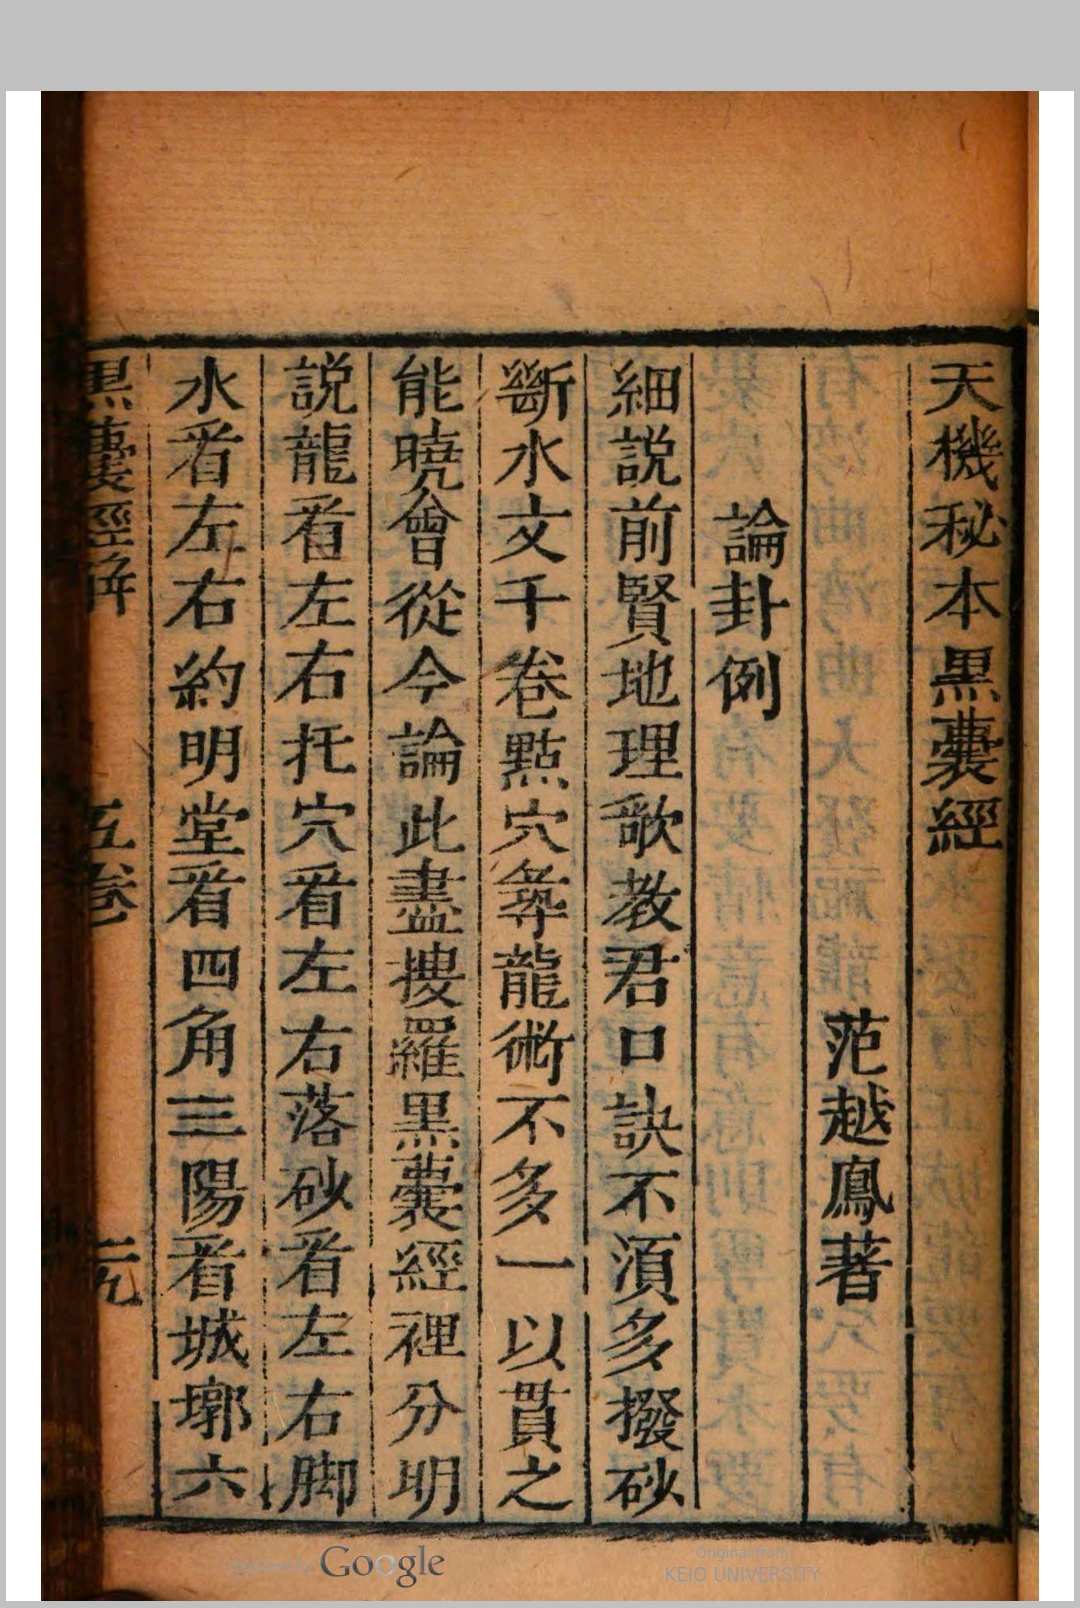 天機秘本黒囊經
范越鳳著
論卦例
細説前賢地理歌教君口訣不湏多撥砂
斷水文千卷㸃穴𢒫龍術不多一以貫之
能曉會從今論此盡摟羅黒囊經裡分明
説龍㸔左右托穴㸔左右落砂㸔左右脚
水㸔左右約明堂㸔四角三陽㸔城墎六
黒囊經解 五卷 二九
Google
Original from
KEIO UNIVERSITY